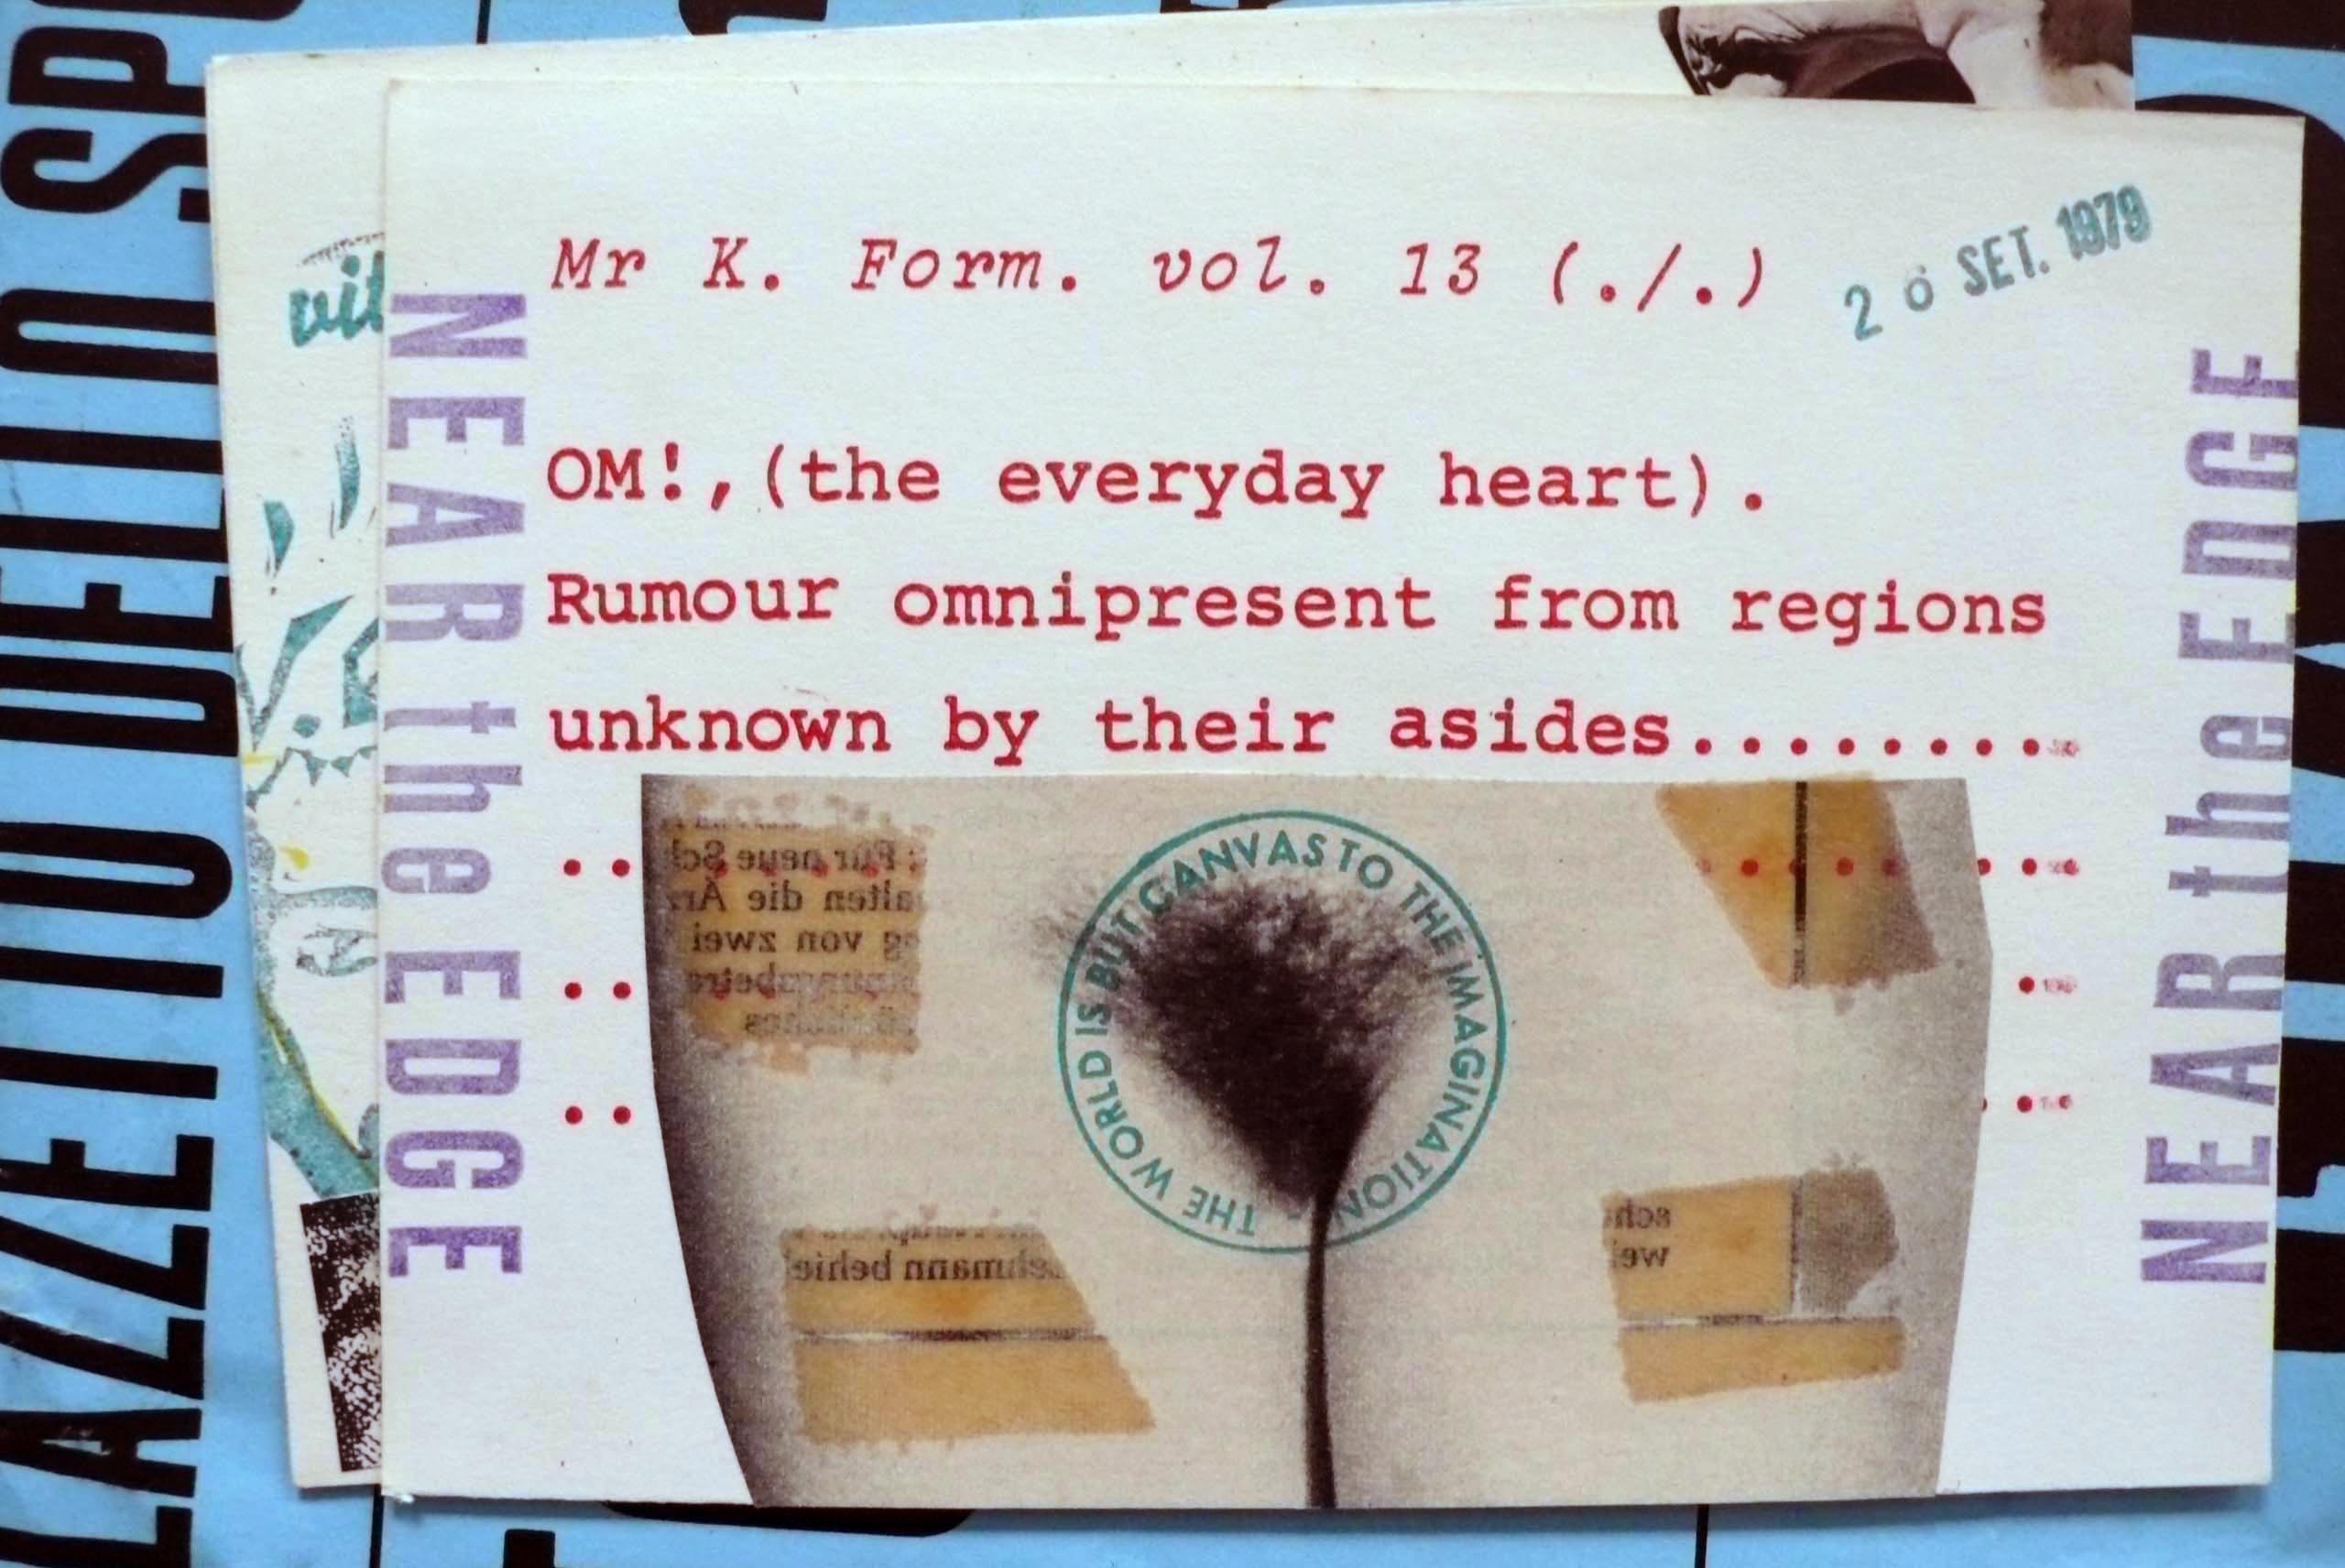 PALAZZETTO DELLO SPO
vit
V.
NEAR the EDGE
Mr K. Form. vol. 13 (./.)
2 6 SET. 1979
OM!,(the everyday heart).
Rumour omnipresent from regions
unknown by their asides........
NEAR the EDGE
THE WORLD IS BUT CANVAS TO THE IMAGINATION -
Für neue Sch
alten die Ar
von zwei
ehmann behiel
sch
wei